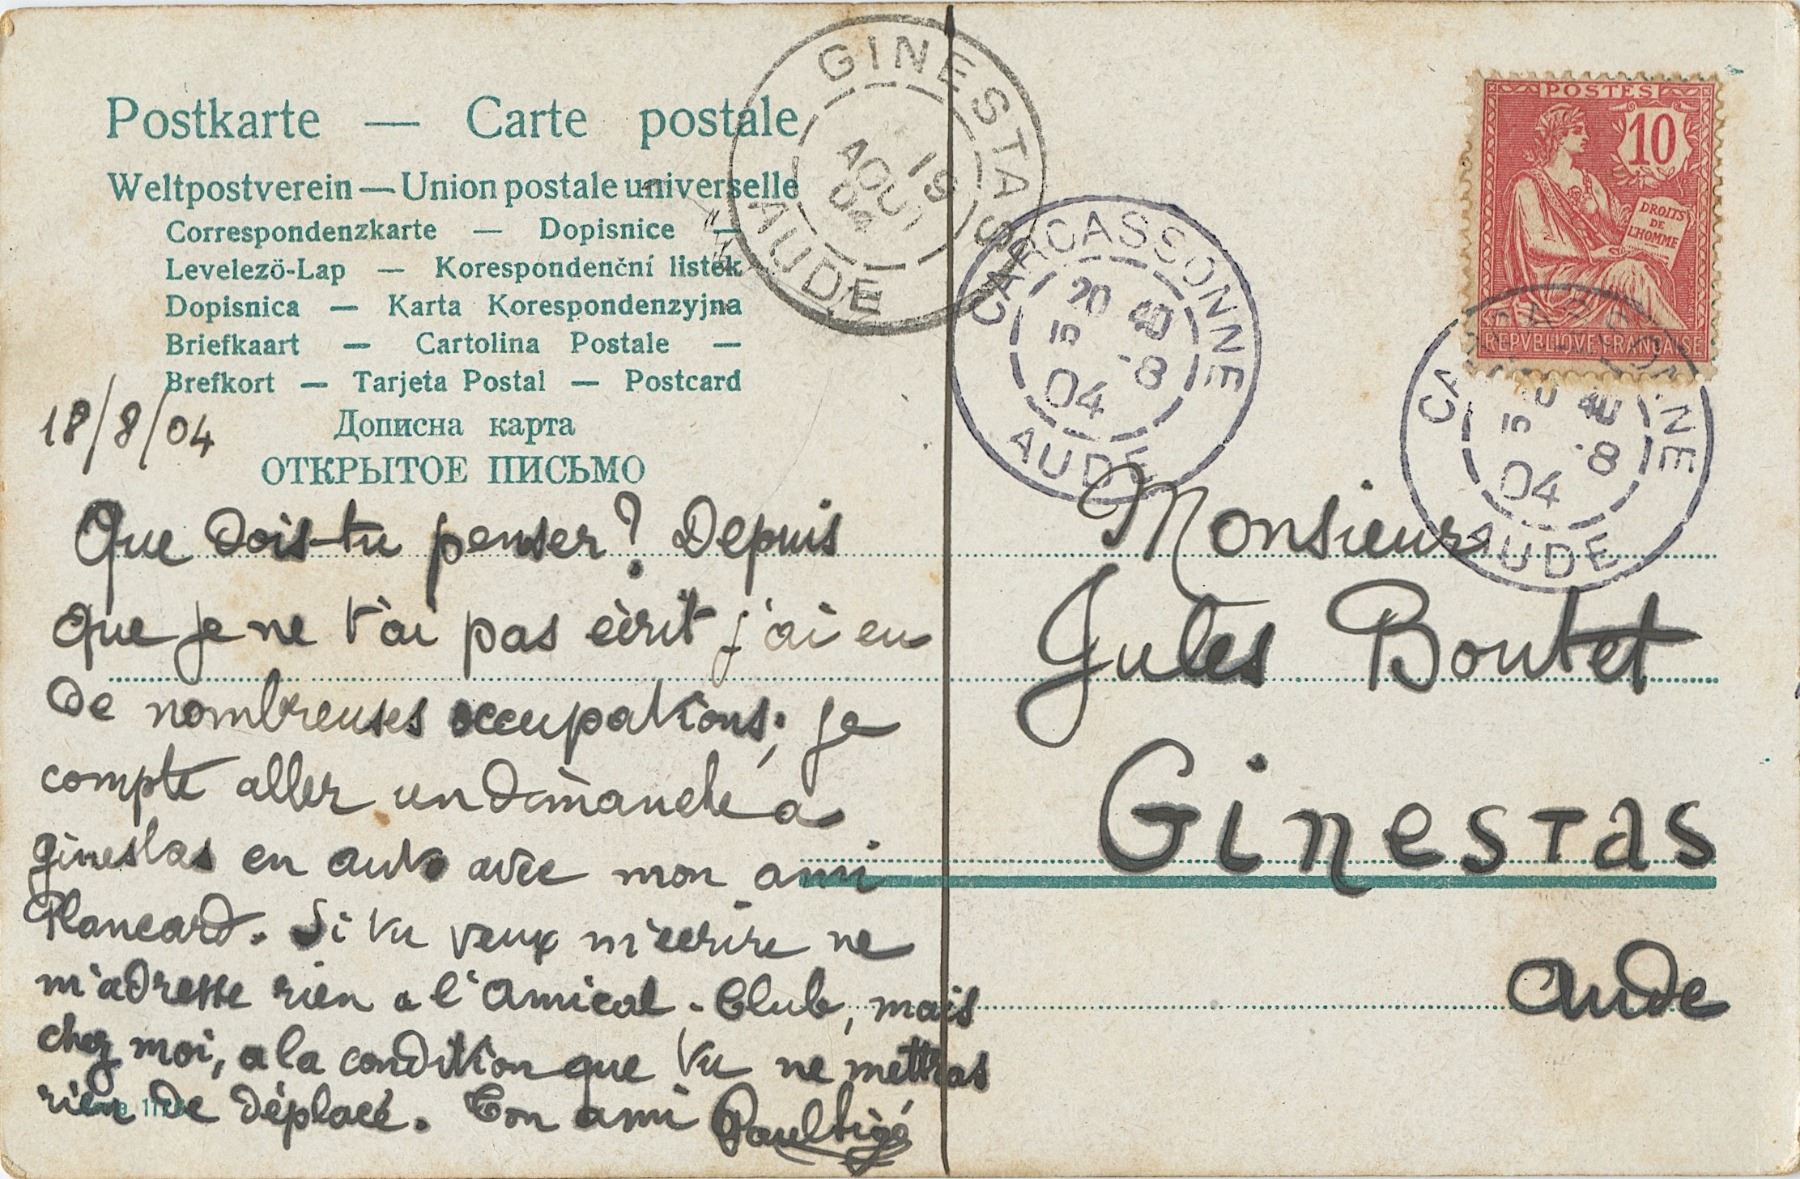 Postkarte — Carte postale
Weltpostverein — Union postale universelle
Correspondenzkarte — Dopisnice —
Levelezö-Lap — Korespondenční listek
Dopisnica — Karta Korespondenzyjna
Briefkaart — Cartolina Postale —
Brefkort — Tarjeta Postal — Postcard
Дописна карта
ОТКРЫТОЕ ПИСЬМО
18/8/04
Que dois-tu penser? Depuis
que je ne t'ai pas écrit j'ai eu
de nombreuses occupations; je
compte aller un dimanche a
ginestas en auto avec mon ami
Plancard. Si tu veux m'écrire ne
m'adresse rien a l'Amical-Club, mais
chez moi, a la condition que tu ne mettras
rien de déplacé. Ton ami
GINESTAS
19
AOUT
04
AUDE
CARCASSONNE
20 40
5 -8
04
AUDE
POSTES
10
DROITS
DE
L'HOMME
REPVBLIQVE FRANÇAISE
CARCASSONNE
20 40
5 -8
04
AUDE
Monsieur
Jules Boutet
Ginestas
Aude